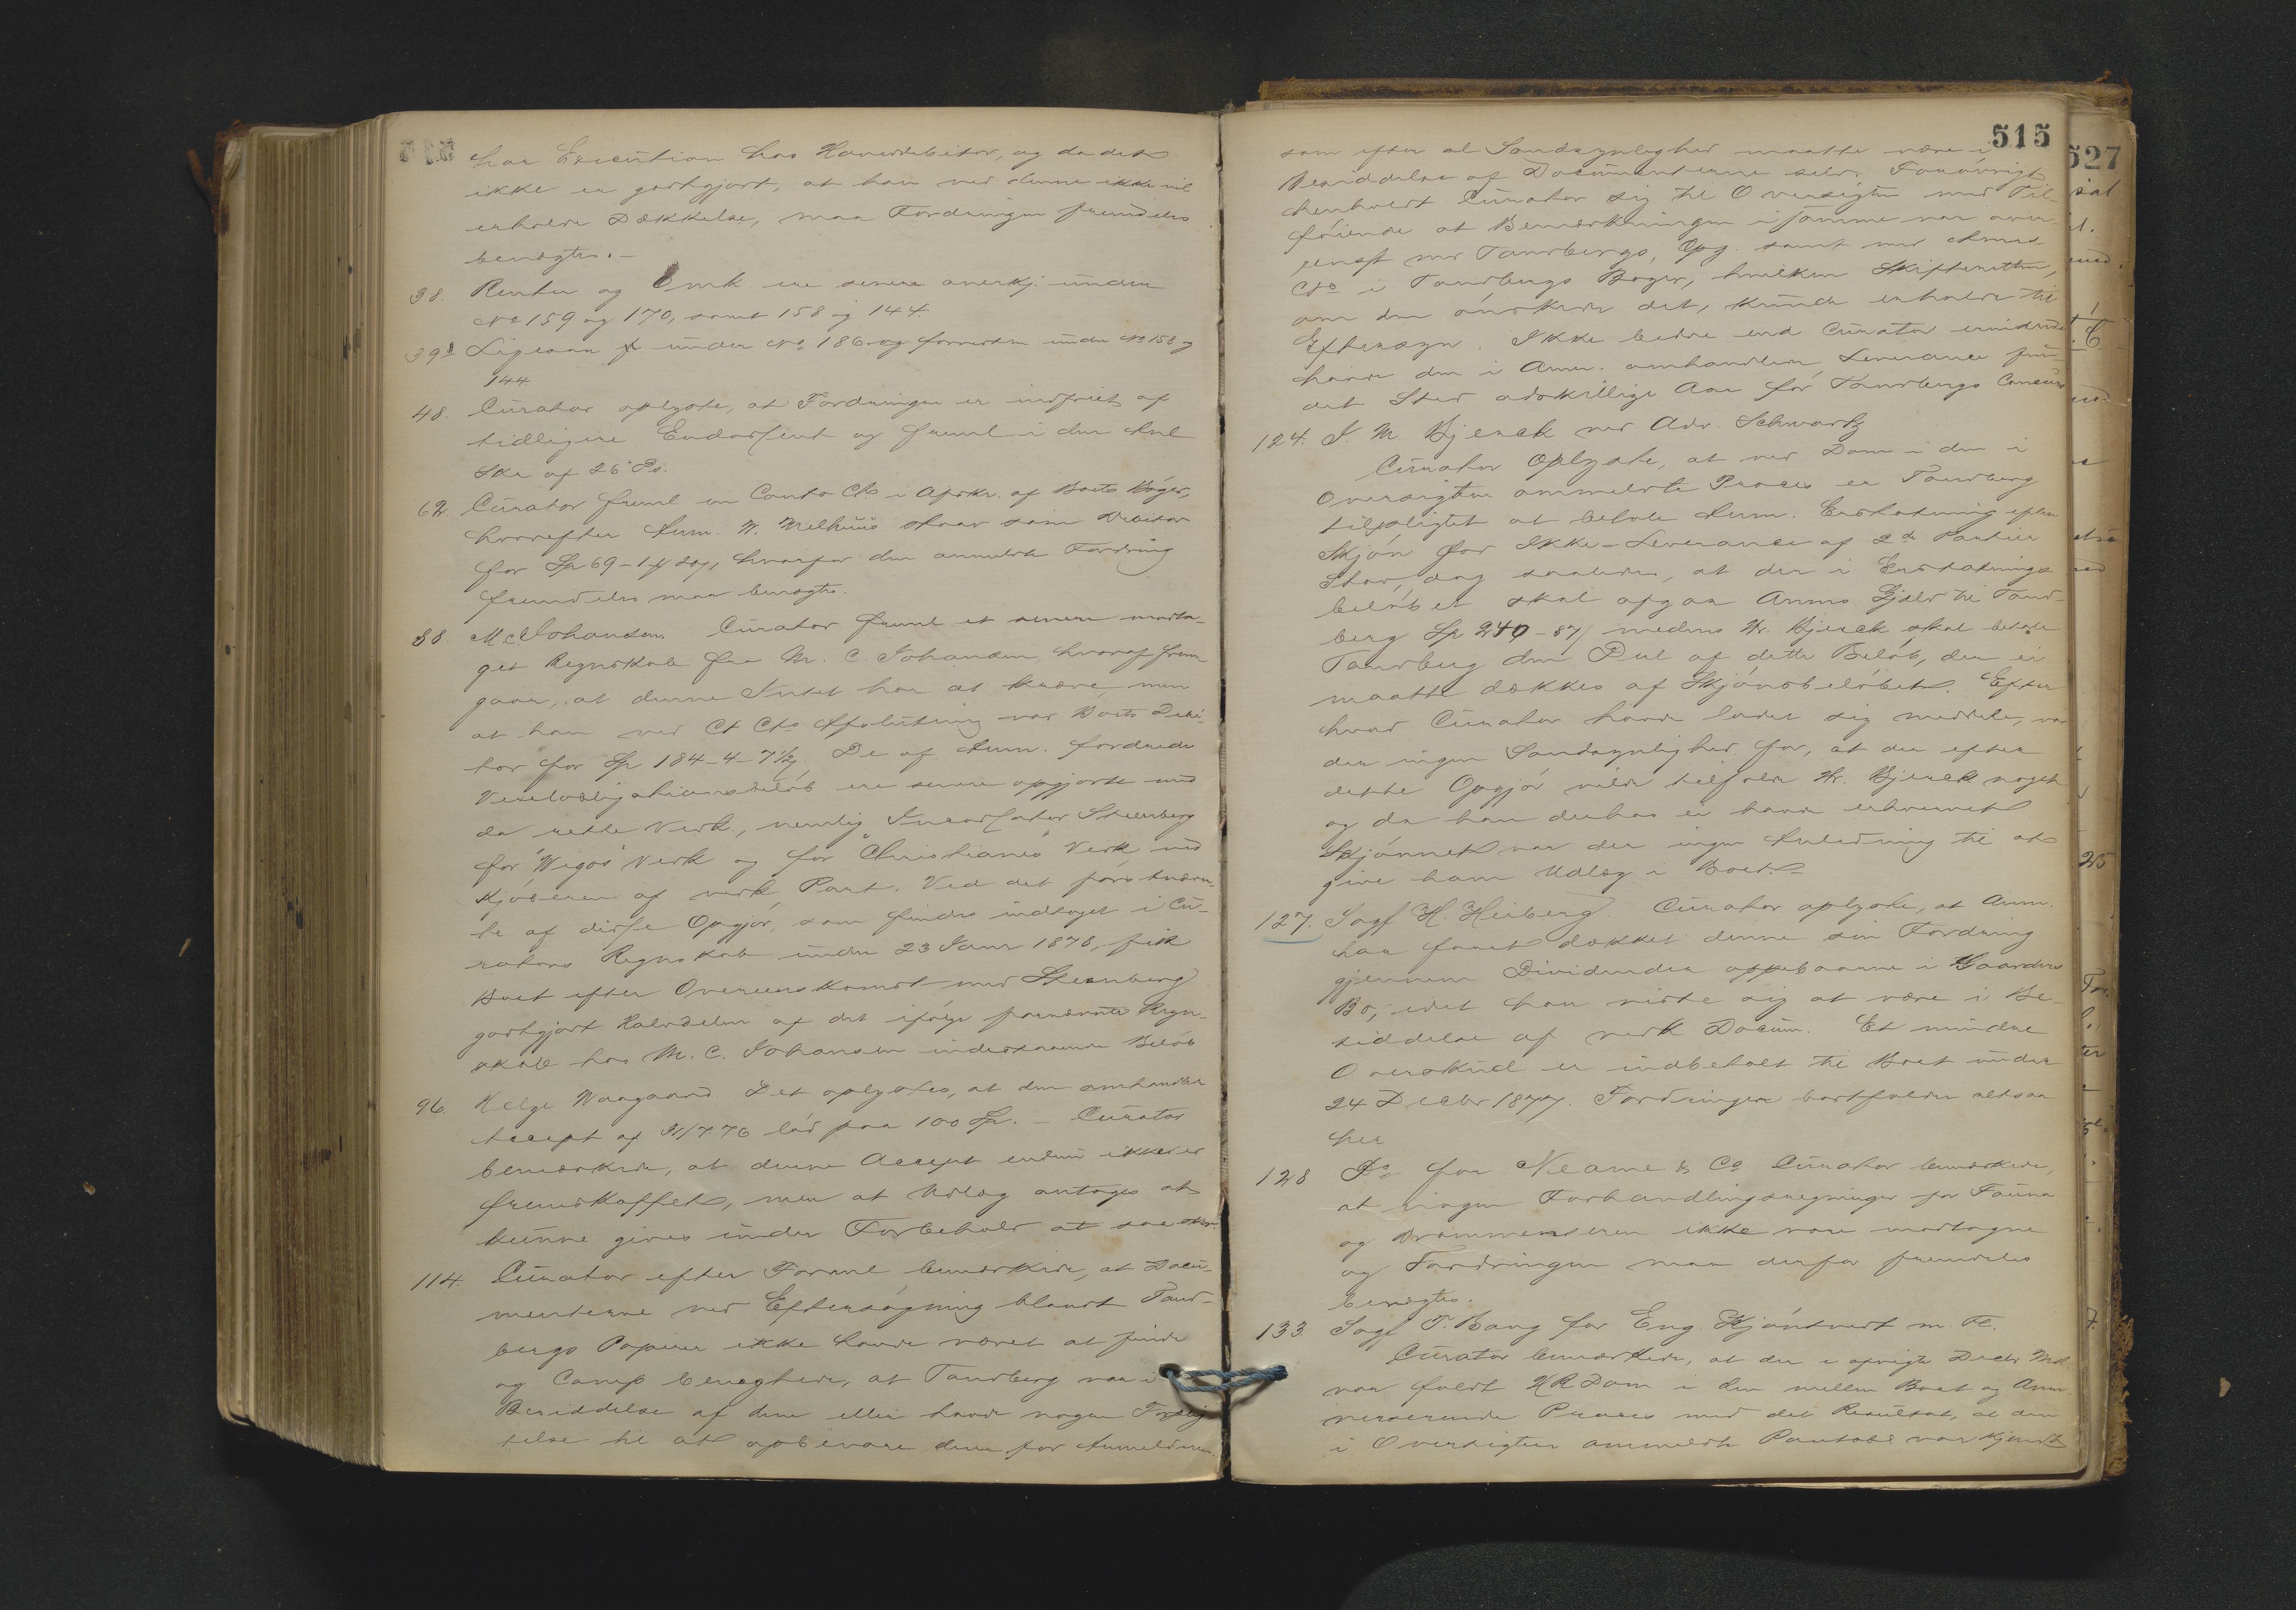 har Execution hos Hoveddebitor, og da det
ikke er godtgjort, at han ved denne ikke vil
erholde Dækkelse, maa Fordringen fremdeles
benægtes.-
38. Renter og Omk ere senere anerkj. under
No 159 og 170, samt 158 og 144.
39 Ligesaa under No 186 og forresten under No 158 og
144
48. Curator oplyste, at Fordringen er indfriet af
tidligere Endossent og freml i den Anl
Ska af 26' Ds.
62. Curator freml en Conto Cto i Afskr. af Boets Bøger,
hvorefter Anm. W. Melhuus staar som Debitor
for Sp 69-1- hvorfor den anmeldte Fordring
fremdeles maa benægtes.
88 M C Johansen. Curator freml et senere modta-
get Regnskab fra M. C. Johansen hvoraf frem
gaar, at denne Intet har at kræve, men
at han ved Ct Cto Afslutning var Boets Debi-
tor for Sp 184-4-7½ De af Anm. fordrede
Vexelobligationsbeløb ere senere opgjorte med
de rette Vedk., nemlig Steenberg
for "Wigos" Vedk og for "Christianes" Vedk med
Kjøberen af vedk Part. Ved det førstnævn-
te af disse Opgjør, som findes indtaget i Cu-
rators Regnskab under 23 Janr 1878, fik
Boet efter Overenskomst med Steenberg
godtgjort Halvdelen af det ifølge fornævnte Regn-
skab hos M. C. Johansen indestaaende Beløb
96. Helge Waagaard Det oplystes, at den omhandlede
Accept af 31/7.76 lød paa 100 Sp. - Curator
bemærkede, at denne Accept endnu ikke er
fremskaffet, men at Udlæg antages at
kunne gives under Forbehold at saa sker.
114. Curator efter Formel bemærkede, at Docu-
menterne ved Eftersøgning blandt Tand-
bergs Papirer ikke havde været at finde
og Comp benegtede, at Tandberg var i
Besiddelse af dem eller havde nogen Forplig
telse til at opbevare dem for Anmelderen,
515
som efter al Sandsynlighed maatte være i
Besiddelse af Documenterne selv. Forøvrigt
henholdt Curator sig til Oversigten med Til-
føiende at Bemærkningen i samme var over-
enst med Tandbergs Opg. samt med Anms
Cto i Tandbergs Bøger, hvilken Skifteretten,
om den ønskede det, kunde erholde til
Eftersyn. Ikke bedre end Curator erindrede
havde den i Anm. omhandlede Leverance fun-
det Sted adskillige Aar før Tandbergs Concurs
124. J. M. Bjerck ved Adv. Schwartz
Curator oplyste, at ved Dom i den i
Oversigten ommeldte Proces er Tandberg
tilpligtet at betale Anm. Erstatning efter
Skjøn for Ikke-Leverance af 2de Partier
Stav, dog saaledes, at der i Erstatnings
beløbet skal afgaa Anms Gjeld til Tand-
berg Sp 240-87/ medens Hr. Bjerck skal betale
Tandberg den Del af dette Beløb, der ei
maatte dækkes af Skjønsbeløbet. Efter
hvad Curator havde ladet sig meddele, var
der ingen Sandsynlighed for, at der efter
dette Opgjør vilde tilfalde Hr. Bjerck noget
og da han derhos ei havde erhvervet
Skjønnet var der ingen Anledning til at
give ham Udlæg i Boet.-
127. Sagf H. Heiberg. Curator oplyste, at Anm.
har faaet dækket denne sin Fordring
gjennem Dividender oppebaarne i Gaarders
Bo, idet han viste sig at være i Be-
siddelse af vedk Docum. Et mindre
Overskud er indbetalt til Boet under
24 Decbr 1877. Fordringen bortfalder altsaa
her
128 Do for Neame & Co Curator bemærkede,
at nogen Forhandlingsregninger for Fauna
og Drammenseren ikke vare modtagne
og Fordringen maa derfor fremdeles
benegtes.
133. Sagf T. Bang for Eng. Kjøntvedt m. Fl.
Curator bemærkede, at der i afvigte Decbr Md.
var faldt HRDom i den mellem Boet og Anm.
verserende Proces med det Resultat, at den
i Oversigten ommeldte Pantobl var kjendt
527